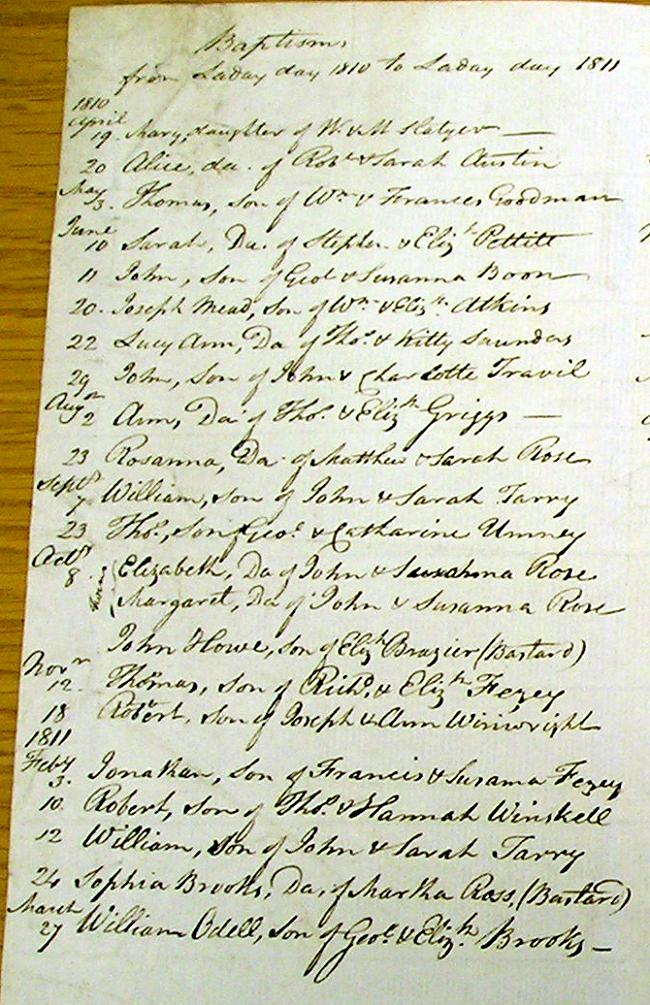 Baptisms
from Laday day 1810 to Laday day 1811
1810
April
19. Mary, daughter of W. & M Slatyer —
20 Alice, da. of Robt & Sarah Austin
May
3. Thomas, son of Wm & Frances Goodman
June
10 Sarah, Da. of Stephen & Elizth Pettitt
11 John, son of Geo. & Susanna Boon
20. Joseph Mead, son of Wm & Elizth Atkins
22 Lucy Ann, Da of Thos. & Kitty Saunders
29 John, Son of John & Charlotte Travil
Augst
2 Ann, Da. of Thos. & Elizth Griggs —
23 Rosanna, Da. of Matthew & Sarah Rose
Septr
7 William, son of John & Sarah Tarry
23 Thos., son of Geo. & Catharine Umney
Octr
8. Twins Elizabeth, Da of John & Susanna Rose
Margaret, Da of John & Susanna Rose
John Howe, son of Elizth Brazier (Bastard)
Novr
12. Thomas, son of Richd. & Elizth Fezey
18 Robert, son of Joseph & Ann Winwright
1811
Feby
3. Jonathan, son of Francis & Susanna Fezey
10. Robert, son of Thos. & Hannah Winskell
12 William, Son of John & Sarah Tarry
24 Sophia Brooks, Da, of Martha Ross, (Bastard)
March
27 William Odell, son of Geo. & Elizth. Brooks —